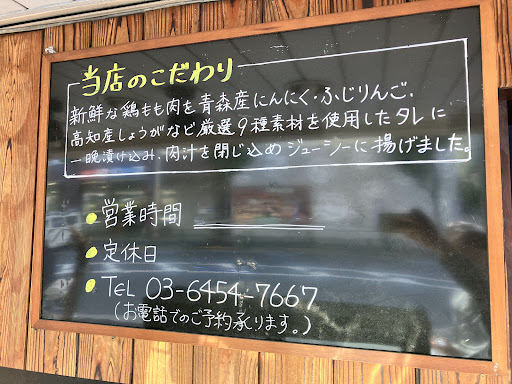 当店のこだわり
新鮮な鶏もも肉を青森産にんにく・ふじりんご、
高知産しょうがなど厳選9種素材を使用したタレに
一晩漬け込み、肉汁を閉じ込めジューシーに揚げました。
●営業時間
●定休日
●TEL 03-6454-7667
(お電話でのご予約承ります。)